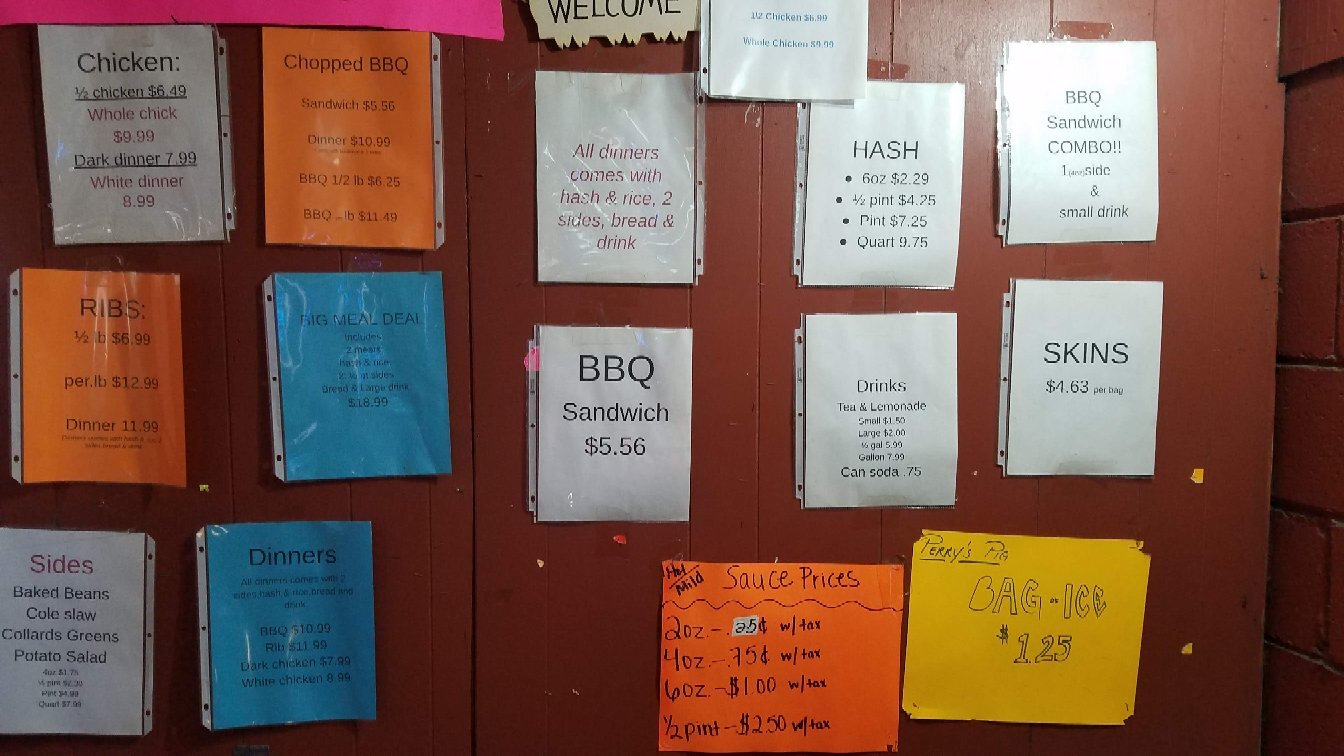 WELCOME
1\2 Chicken $6.99
Whole Chicken $9.99
Chicken:
½ chicken $6.49
Whole chick
$9.99
Dark dinner 7.99
White dinner
8.99
Chopped BBQ
Sandwich $5.56
Dinner $10.99
BBQ 1/2 lb $6.25
BBQ lb $11.49
All dinners
comes with
hash & rice, 2
sides, bread &
drink
HASH
• 6oz $2.29
• ½ pint $4.25
• Pint $7.25
• Quart 9.75
BBQ
Sandwich
COMBO!!
1(4oz)side
&
small drink
RIBS:
½ lb $6.99
per.lb $12.99
Dinner 11.99
Dinners comes with hash & rice 2
sides bread & drink
BIG MEAL DEAL
Includes
2 meats
hash & rice,
2 sides
Bread & Large drink
$18.99
BBQ
Sandwich
$5.56
Drinks
Tea & Lemonade
Small $1.50
Large $2.00
½ gal 5.99
Gallon 7.99
Can soda .75
SKINS
$4.63 per bag
Sides
Baked Beans
Cole slaw
Collards Greens
Potato Salad
4oz $1.75
½ pint
Pint $4.99
Quart $7.99
Dinners
All dinners comes with 2
sides,hash & rice,bread and
drink
BBQ $10.99
Rib $11.99
Dark chicken $7.99
White chicken 8.99
Hot/Mild
Sauce Prices
2oz.-.25¢ w/tax
4oz-.75¢ w/tax
6oz.-$1.00 w/tax
½ pint-$2.50 w/tax
PERRY'S PIG
BAG-ICE
$1.25